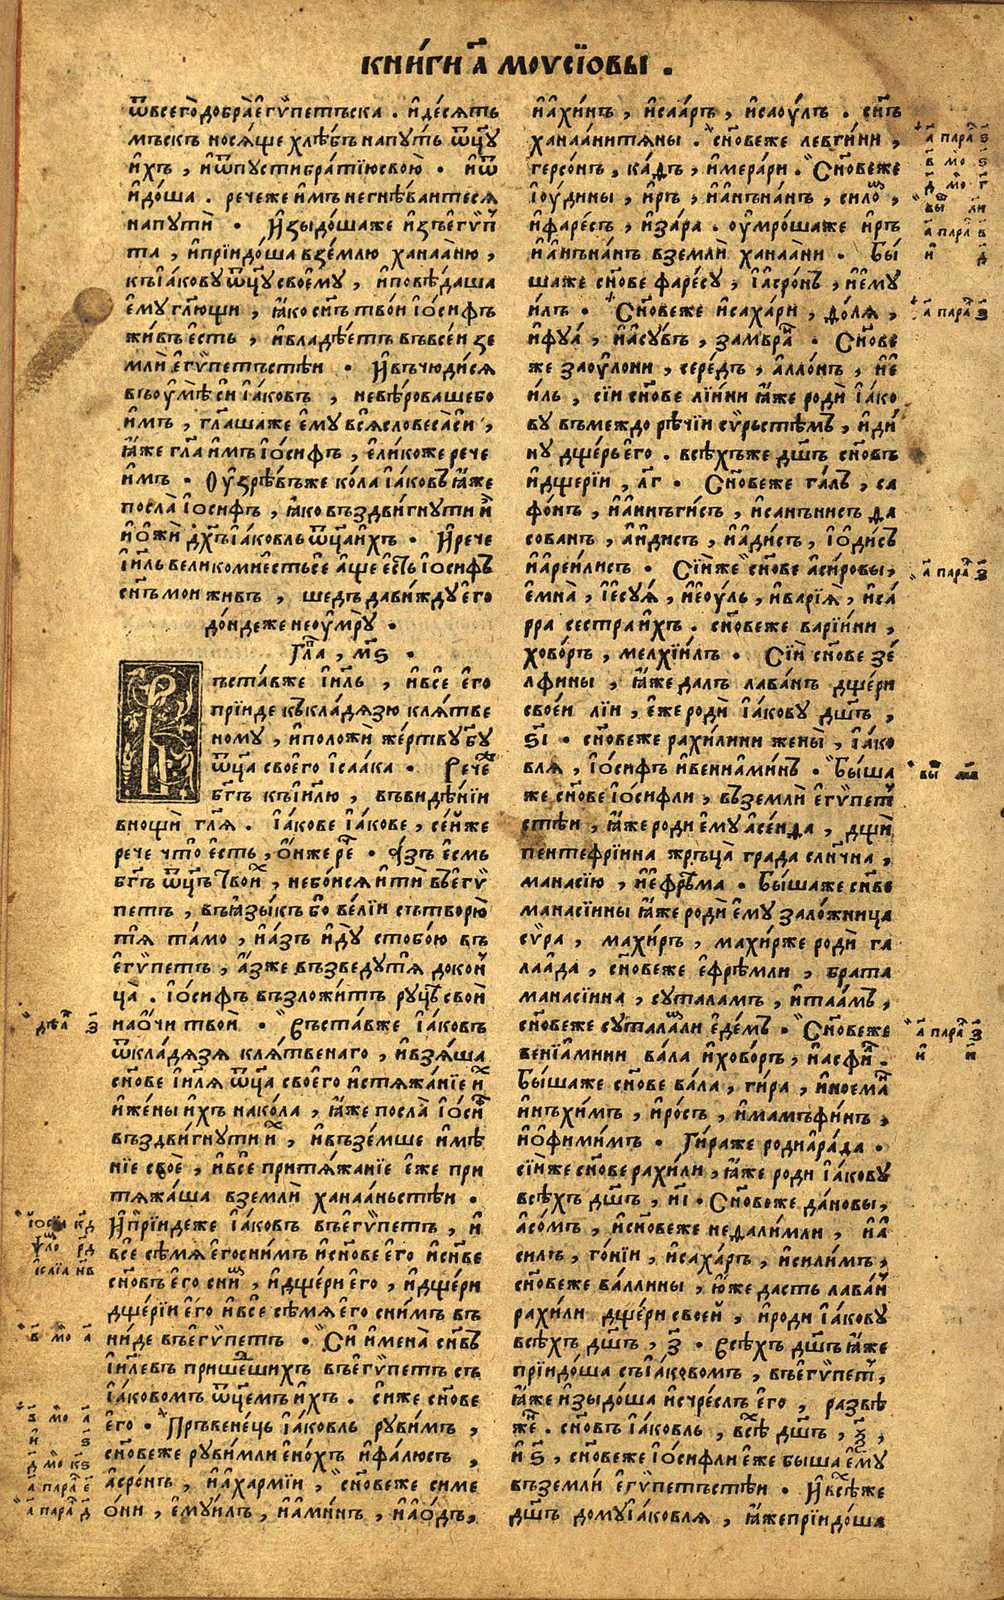 КНИ́ГИ А҃ МОѴСЇѠВЫ .
ѿвсегѡ̀ добра̀ єгѵ́петъска . и҆де́сять
мъскъ нося́ще хлѣ́бъ напу́ть ѿц҃у
и҆хъ , и҆ѿпустѝ бра́тїю свою̀ . и҆ѿ
идо́ша . рече́же и҆мъ негнѣ́ваитеся
напутѝ . И҆зыдо́шаже и҆зъ єгѵ́п
та , и҆прїидо́ша взе́млю ханаа́ню ,
къ їа́кову ѿц҃у своему , и҆повѣ́даша
єму гл҃ющи , ꙗ҆́ко сн҃ъ твои їо́сифъ
жи́въ єсть , и҆владѣ́етъ въвсе́и зе
млѝ єгѵ́петъстѣи . И҆въчюди́ся
въоумѣ̀ си їа́ковъ , невѣ́ровашебо
и҆мъ , гл҃ашаже єму вся̀ словеса̀ си ,
ꙗ҆́же гл҃а и҆мъ їо́сифъ , єли́коже рече
и҆мъ . Оу҆зрѣ́въже ко́ла їа́ковъ ꙗ҆́же
посла̀ їо́сифъ , ꙗ҆́ко въздви́гнути и҆̀
и҆ожѝ дх҃ъ їа́ковль ѿц҃а и҆хъ . И҆рече
їи҃ль великомиестьсе а҆ще єсть їо́сифъ
сн҃ъ мои живъ , шедъ да ви́жду єго
до́ндеже неоу҆мру̀ .
Гл҃а , м҃ѕ .
ъста́вже їи҃ль , и҆всѐ єго
прїиде къ кла́дязю кля́тве
ному , и҆положѝ же́ртву бг҃у
ѿц҃а своего̀ ї҆саа́ка . Рече
бг҃ъ къ їи҃лю , въвидѣ́нїи
внощѝ гл҃я . їа́кове їа́кове , се́и҆же
рече что̀ есть , о҆́нже рече . А҆́зъ єсмь
бг҃ъ ѿц҃ъ твои́х , небо́ися и҆тѝ въ єгѵ́
петъ , въ ꙗ҆зы́къ бо ве́лїи сътворю̀
тя̀ та́мо , и҆а҆́зъ и҆ду̀ стобо́ю въ
єгѵ́петъ , а҆́зже възведу̀тя̀ докон
ца̀ . їо́сифъ възложи́тъ ру́цѣ свои́
нао́чи твоѝ . Въста́вже їа́ковъ
ѿкла́дязя кля́твенаго , и҆взя́ша
сн҃ове їи҃ля ѿц҃а своего̀ и҆стяжа́нїе и҆х
и҆жены и҆хъ нако́ла , ꙗ҆́же посла̀ їо́сиф
въздви́гнути и҆̀ , и҆възе́мше и҆мѣ
нїе своѐ , и҆всѐ притяжа́нїе єже при
тяжа́ша вземлѝ ханаа́ньстѣи .
И҆прїидеже їа́ковъ въ єгѵ́петъ , и҆
всѐ сѣмя єго сни́мъ и҆сн҃ове єго и҆сн҃ве
сн҃овъ єго сни́м , и҆дще́ри єго , и҆дще́ри
дще́рїи єго и҆всѐ сѣмя єго сни́мъ въ
ни́де въ єгѵ́петъ . Си и҆мена̀ сн҃въ
їи҃левъ прише́дшихъ въ єгѵ́петъ съ
їа́ковомъ ѿц҃емъ и҆хъ . сиже сн҃ове
єго . Пръвене́ць їа́ковль руви́мъ ,
сн҃овеже руви́мли є҆но́хъ и҆фа́люсъ ,
а҆сро́нъ , и҆а҆харми́и , сн҃овеже симе
о́ни , є҆муи́лъ , и҆а҆ми́нъ , и҆а҆о́дъ ,
и҆а҆хи́нъ , и҆саа́ръ , и҆саоу́лъ . сн҃ъ
ханаани́тяны . сн҃овеже левги́ни ,
герсо́нъ , ка́дъ , и҆мера́ри . Сн҃овеже
їоу́дины , и҆ръ , и҆а҆нъна́нъ , сило́м ,
и҆фаре́съ , и҆за́ра . оу҆мро́шаже и҆ръ
и҆а҆нъна́нъ вземлѝ ханаа́ни . Бы́
шаже сн҃ове фаре́су , їасро́нъ , и҆єму
и҆лъ . Сн҃овеже и҆саха́ри , до́ля ,
и҆фуа́ , и҆а҆су́въ , замвра́м . Сн҃ове
же заоу́лони , сере́дъ , а҆лло́нъ , и҆е
и҆ль , сїи сн҃ове лїи́ни ꙗ҆́же родѝ їа́ко
ву въ междорѣ́чїи сѵ́рьстѣмъ , и҆ди
ну дще́рь єго . всѣ́хъже дш҃ъ сн҃овъ
и҆дще́рїи , л҃г . Сн҃овеже га́дъ , са
фо́нъ , и҆а҆ннъги́съ , и҆санъни́съ да
сованъ , а҆и҆ди́съ , и҆а҆ди́съ , їо́дисъ
и҆а҆реи́лисъ . Сїи҆же сн҃ове аси́ровы ,
є҆мна̀ , їесуя̀ , и҆еоу́ль , и҆вари́я , и҆са
рра сестра и҆хъ . сн҃овеже вари́ини ,
хово́ръ , мелхїи́лъ . Сїи сн҃ове зе́
лфины , ꙗ҆́же далъ лава́нъ дще́ри
свое́и лїи , є҆же родѝ їа́кову дш҃ъ ,
ѕ҃і . сн҃овеже рахи́лини жены̀ , їа́ко
вля , їо́сифъ и҆венїами́нъ . Бы́ша
же сн҃ове їо́сифли , въ землѝ єгѵ́пет
стѣи , ꙗ҆́же роди єму а҆се́нда , дщѝ
пентефрїи́на жръца̀ гра́да сли́чна ,
манасі́ю , и҆ефре́ма . Бы́шаже сн҃ве
манасїи́ны ꙗ҆́же родѝ єму зало́жница
сѵ́ра , махи́ръ , махи́рже родѝ га
лаа́да , сн҃овеже є҆фрѣ́мли , бра́та
манасїи́на , сутала́мъ , и҆таа́мъ ,
сн҃овеже сутала́мли є҆де́мъ . Сн҃овеже
венїами́ни ва́ла и҆хово́ръ , и҆асфи́л .
Бы́шаже сн҃ове ва́ла , ги́ра , и҆ноема́н
и҆нъхи́мъ , и҆ро́съ , и҆мамъфи́нъ ,
и҆о҆фими́мъ . Ги́раже роди а҆ра́да .
сїи҆же сн҃ове рахи́ли , ꙗ҆́же роди їа́кову
всѣ́хъ дш҃ъ , и҃і . Сн҃овеже да́новы ,
а҆со́мъ , и҆сн҃овеже недали́мли , и҆а
си́лъ , го́нїи , и҆саха́ръ , и҆сили́мъ ,
сн҃овеже ва́ллины , ю҆́же дасть лава́н
рахи́ли дще́ри своеѝ , и҆роди їа́кову
всѣ́хъ дш҃ъ , з҃ . Всѣ́хъ дш҃ъ ꙗ҆́же
прїидо́ша съ їа́ковомъ , въ єгѵ́пет ,
ꙗ҆́же и҆зыдо́ша и҆счре́слъ єго , развѣ
же сн҃овъ їа́ковль , всѣ́х дш҃ъ , ѯ҃ ,
и҆ ѕ҃ , сн҃овеже їо́сифли єже быша єму
въземли́ єгѵ́петъстѣи . И҆всѣ́хже
дш҃ъ дому їа́ковля , ꙗ҆́же прїидо́ша